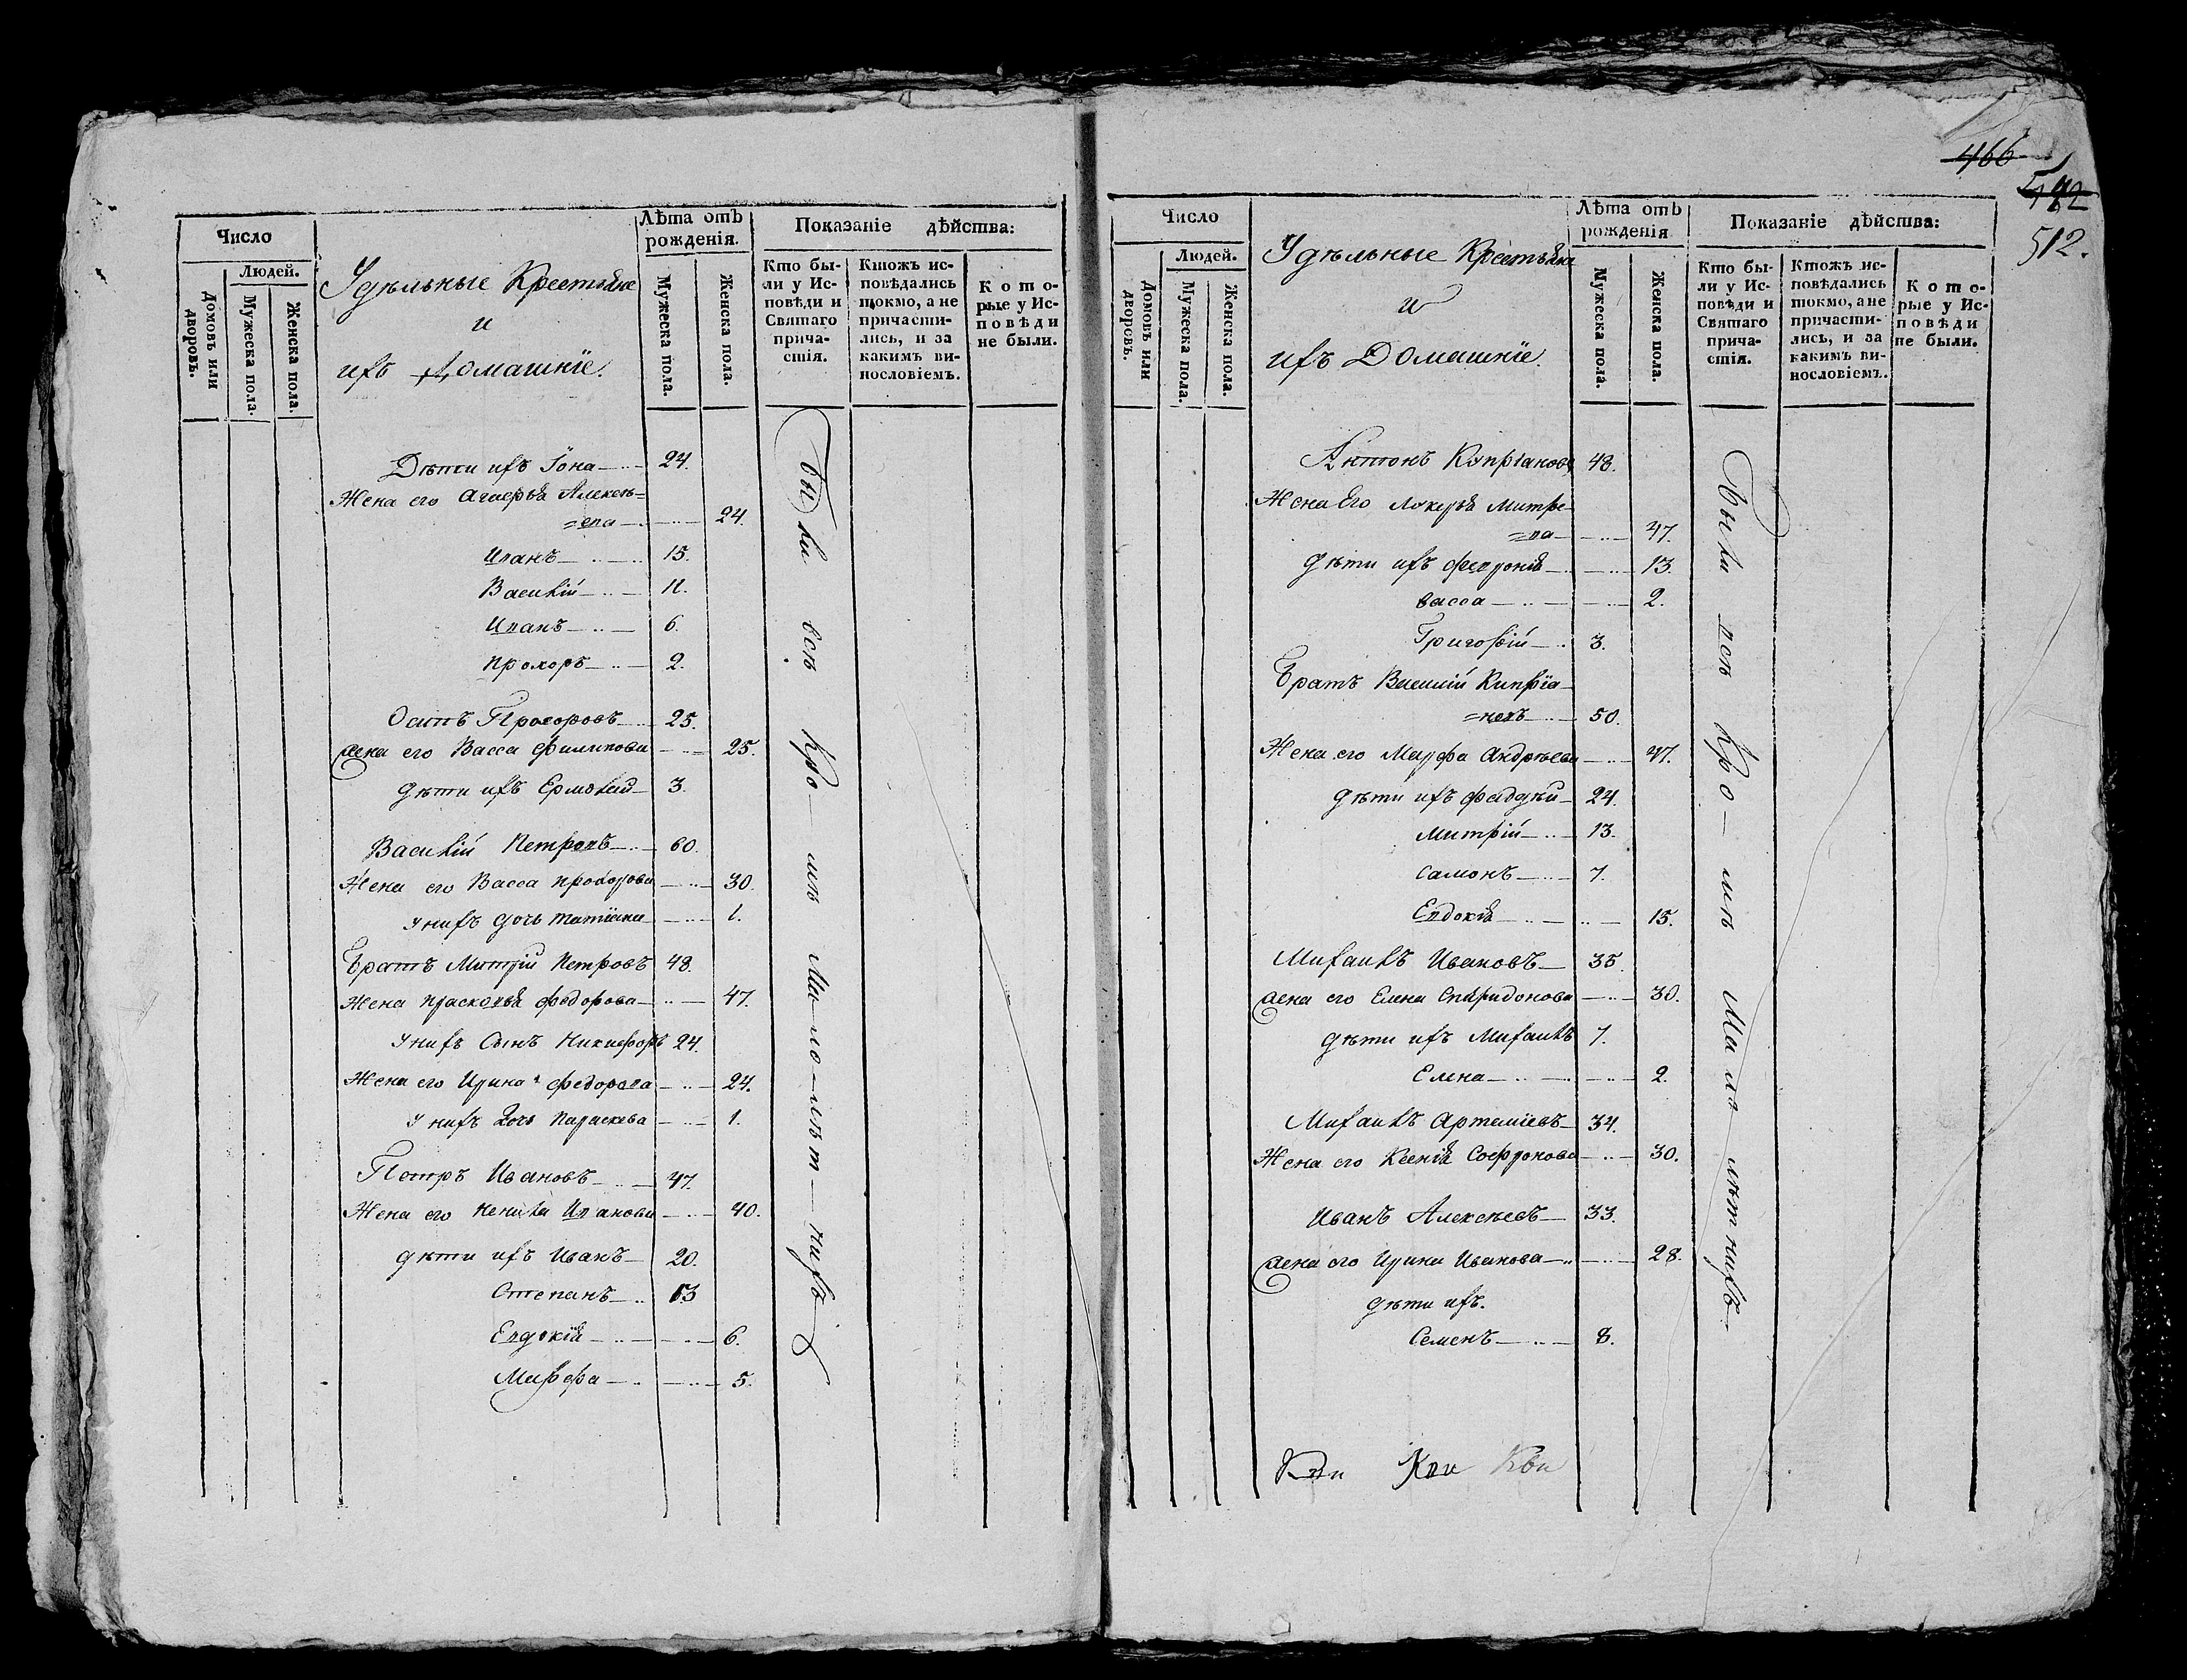 Число
Людей.
Домовъ или дворовъ.
Мужеска пола.
Женска пола.
Удѣльные Крестьяне
и
ихъ Домашнїе.
Лѣта отъ рожденїя.
Мужеска пола.
Женска пола.
Показаніе дѣйства:
Кто бы-
ли у Ис-
повѣди и
Святаго
прича-
стія.
Ктожъ ис-
повѣдались
токмо, а не
причасти-
лись, и за
какимъ ви-
нословіемъ.
К о т о-
рые у Ис-
повѣди
не были.
Дѣти ихъ Іона 24.
Жена его Алексѣ=
=ева 24.
Иванъ 15.
Василій 11.
Иванъ 6.
Прохоръ 2.
Осипъ Прохоровъ 25.
жена его Васса Филипова 25.
дѣти ихъ Ермолай 3.
Василій Петровъ 60.
Жена его Васса Прохорова 30.
у нихъ дочь Татїана 1.
Братъ Митрій Петровъ 48.
Жена Прасковья Федорова 47.
у нихъ Сынъ Никифоръ 24.
Жена его Ирина Федорова 24.
у нихъ Дочь Параскева 1.
Петръ Ивановъ 47.
Жена его Ивакова 40.
дѣти ихъ Иванъ 20.
Степанъ 13
Евдокія 6.
Марфа 5.
Были всѣ Кро-мѣ Ма-ло-лѣт-нихъ
466
512.
Число
Людей.
Домовъ или дворовъ.
Мужеска пола.
Женска пола.
Удѣльные Крестьяне
и
ихъ Домашнїе.
Лѣта отъ рожденія
Мужеска пола.
Женска пола.
Показаніе дѣйства:
Кто бы-
ли у Ис-
повѣди и
Святаго
прича-
стія.
Ктожъ ис-
повѣдались
токмо, а не
причасти-
лись, и за
какимъ ви-
нословіемъ.
К о т о-
рые у Ис-
повѣди
не были.
Антонъ Купріановъ 48.
Жена Его Лукерья Митрѣ-
=ва 47.
дѣти ихъ Февронія 13.
Васса 2.
Григорій 3.
Братъ Василій Кипрїа-
=новъ 50.
Жена его Марфа Андрѣева 47.
дѣти ихъ Фаддѣй 24.
Митрій 13.
Самонъ 7.
Евдокія 15.
Михаилъ Ивановъ 35.
жена его Елена Спиридонова 30.
дѣти ихъ Михаилъ 7.
Елена 2.
Михаилъ Артемїевъ 34.
Жена его Ксенія Софронова 30.
Иванъ Алексѣевъ 33.
жена его Ирина Иванова 28.
дѣти ихъ.
Семенъ 8.
Были всѣ Кро-мѣ Мало лѣтнихъ